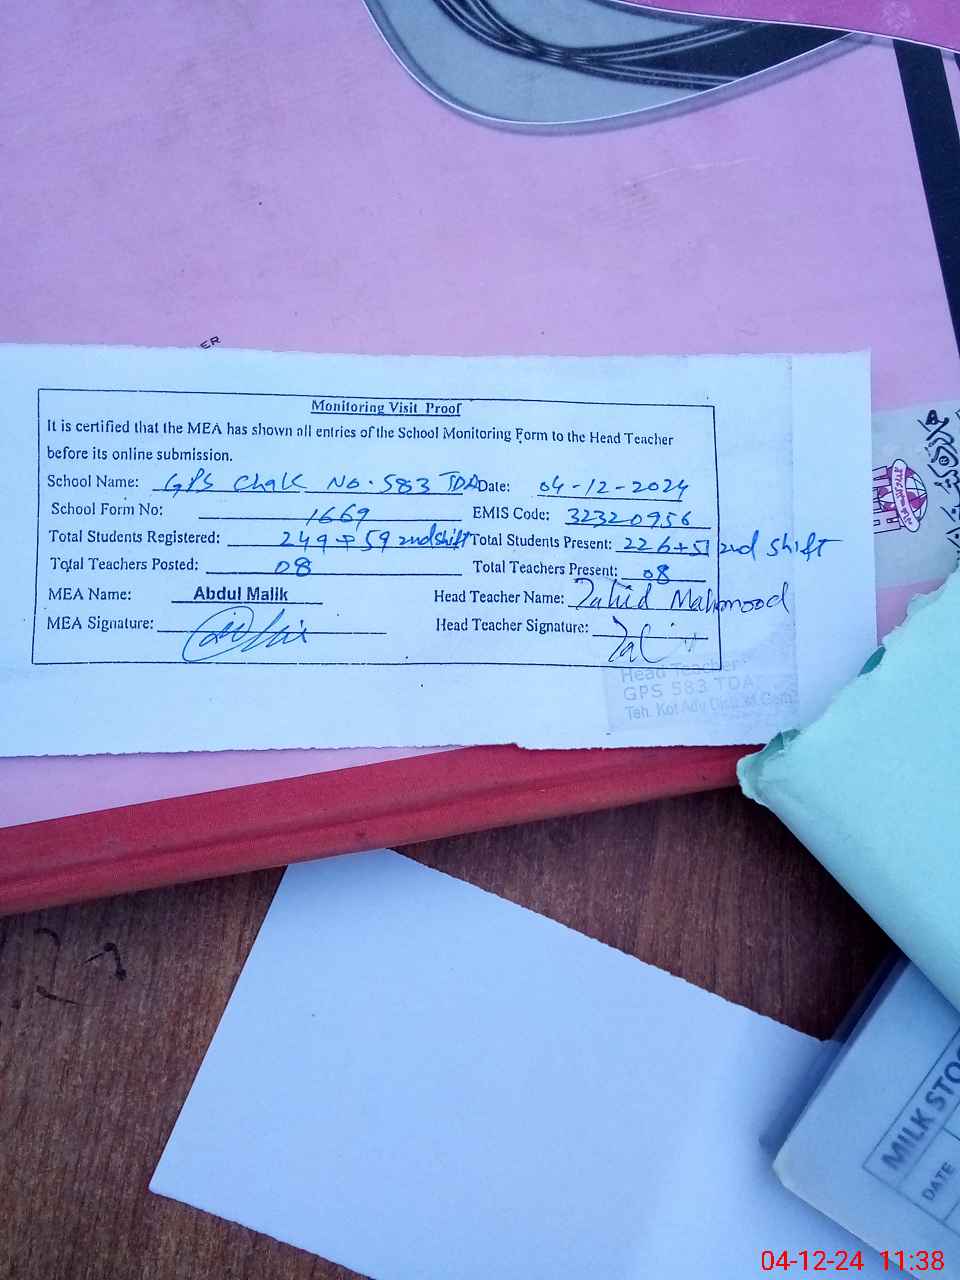 ER
Monitoring Visit Proof
It is certified that the MEA has shown all entries of the School Monitoring Form to the Head Teacher
before its online submission.
School Name: GPS Chak No. 583 TDA Date: 04-12-2024
School Form No: 1669 EMIS Code: 32320956
Total Students Registered: 249+59 2nd shift Total Students Present: 226+51 2nd shift
Total Teachers Posted: 08 Total Teachers Present: 08
MEA Name: Abdul Malik Head Teacher Name: Zahid Mahmood
MEA Signature: Head Teacher Signature:
Head Teacher
GPS 583 TDA
Teh. Kot Adu Distt.
MILK STO
DATE
04-12-24 11:38